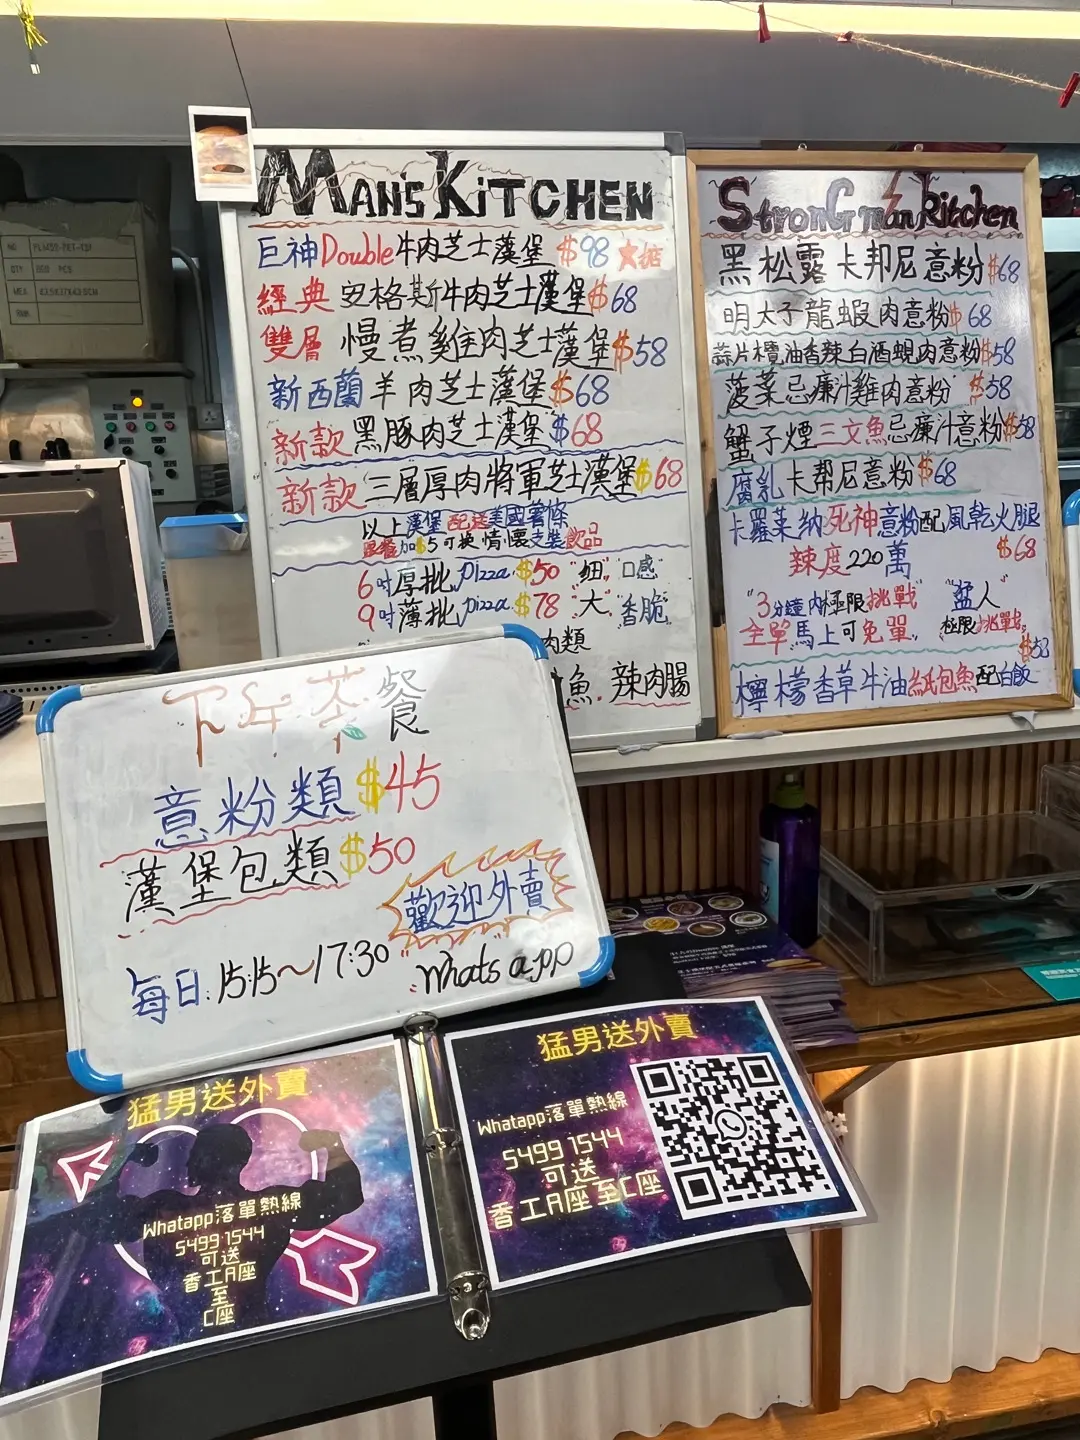 MAN'S KITCHEN
巨神Double牛肉芝士漢堡 $98 大掂
經典 安格斯牛肉芝士漢堡$68
雙層 慢煮雞肉芝士漢堡$58
新西蘭羊肉芝士漢堡$68
新款黑豚肉芝士漢堡$68
新款 三層厚肉將軍芝士漢堡$68
以上漢堡配送美國薯條
跟餐加$5可換情懷支裝飲品
6吋厚批pizza $50 "細" "口感
9吋薄批pizza $78 "大" "香脆"
肉類
魚. 辣肉腸
StronG man kitchen
黑松露卡邦尼意粉$68
明太子龍蝦肉意粉$68
蒜片欖油香辣白酒蜆肉意粉$58
菠菜忌廉汁雞肉意粉 $58
蟹子煙三文魚忌廉汁意粉$58
腐乳卡邦尼意粉$68
卡羅萊納死神意粉配風乾火腿
辣度220萬 $68
"3分鐘內極限挑戰 "猛人"
全單馬上可免單" 極限挑戰
$52
檸檬香草牛油紙包魚配白飯
下午茶餐
意粉類$45
漢堡包類$50
歡迎外賣
每日:15:15~17:30 "Whats app
猛男送外賣
Whatapp落單熱線
5499 1544
可送
香工A座
至
C座
猛男送外賣
Whatapp落單熱線
5499 1544
可送
香工A座至C座